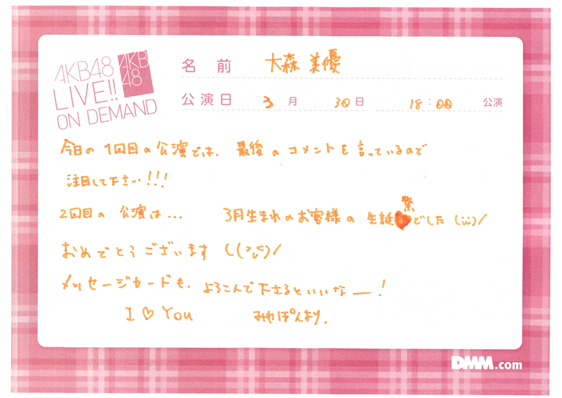 AKB48
LIVE!!
ON DEMAND
AKB
48
名前 大森 美優
公演日 3月 30日 18:00 公演
今日の1回目の公演では、最後のコメントも言っているので
注目して下さーい!!!
2回目の公演は... 3月生まれのお客様の生誕祭でした
おめでとうございます
メッセージカードも、よろこんで下さるといいなー!
I ♡ You みゆぽんより。
DMM.com